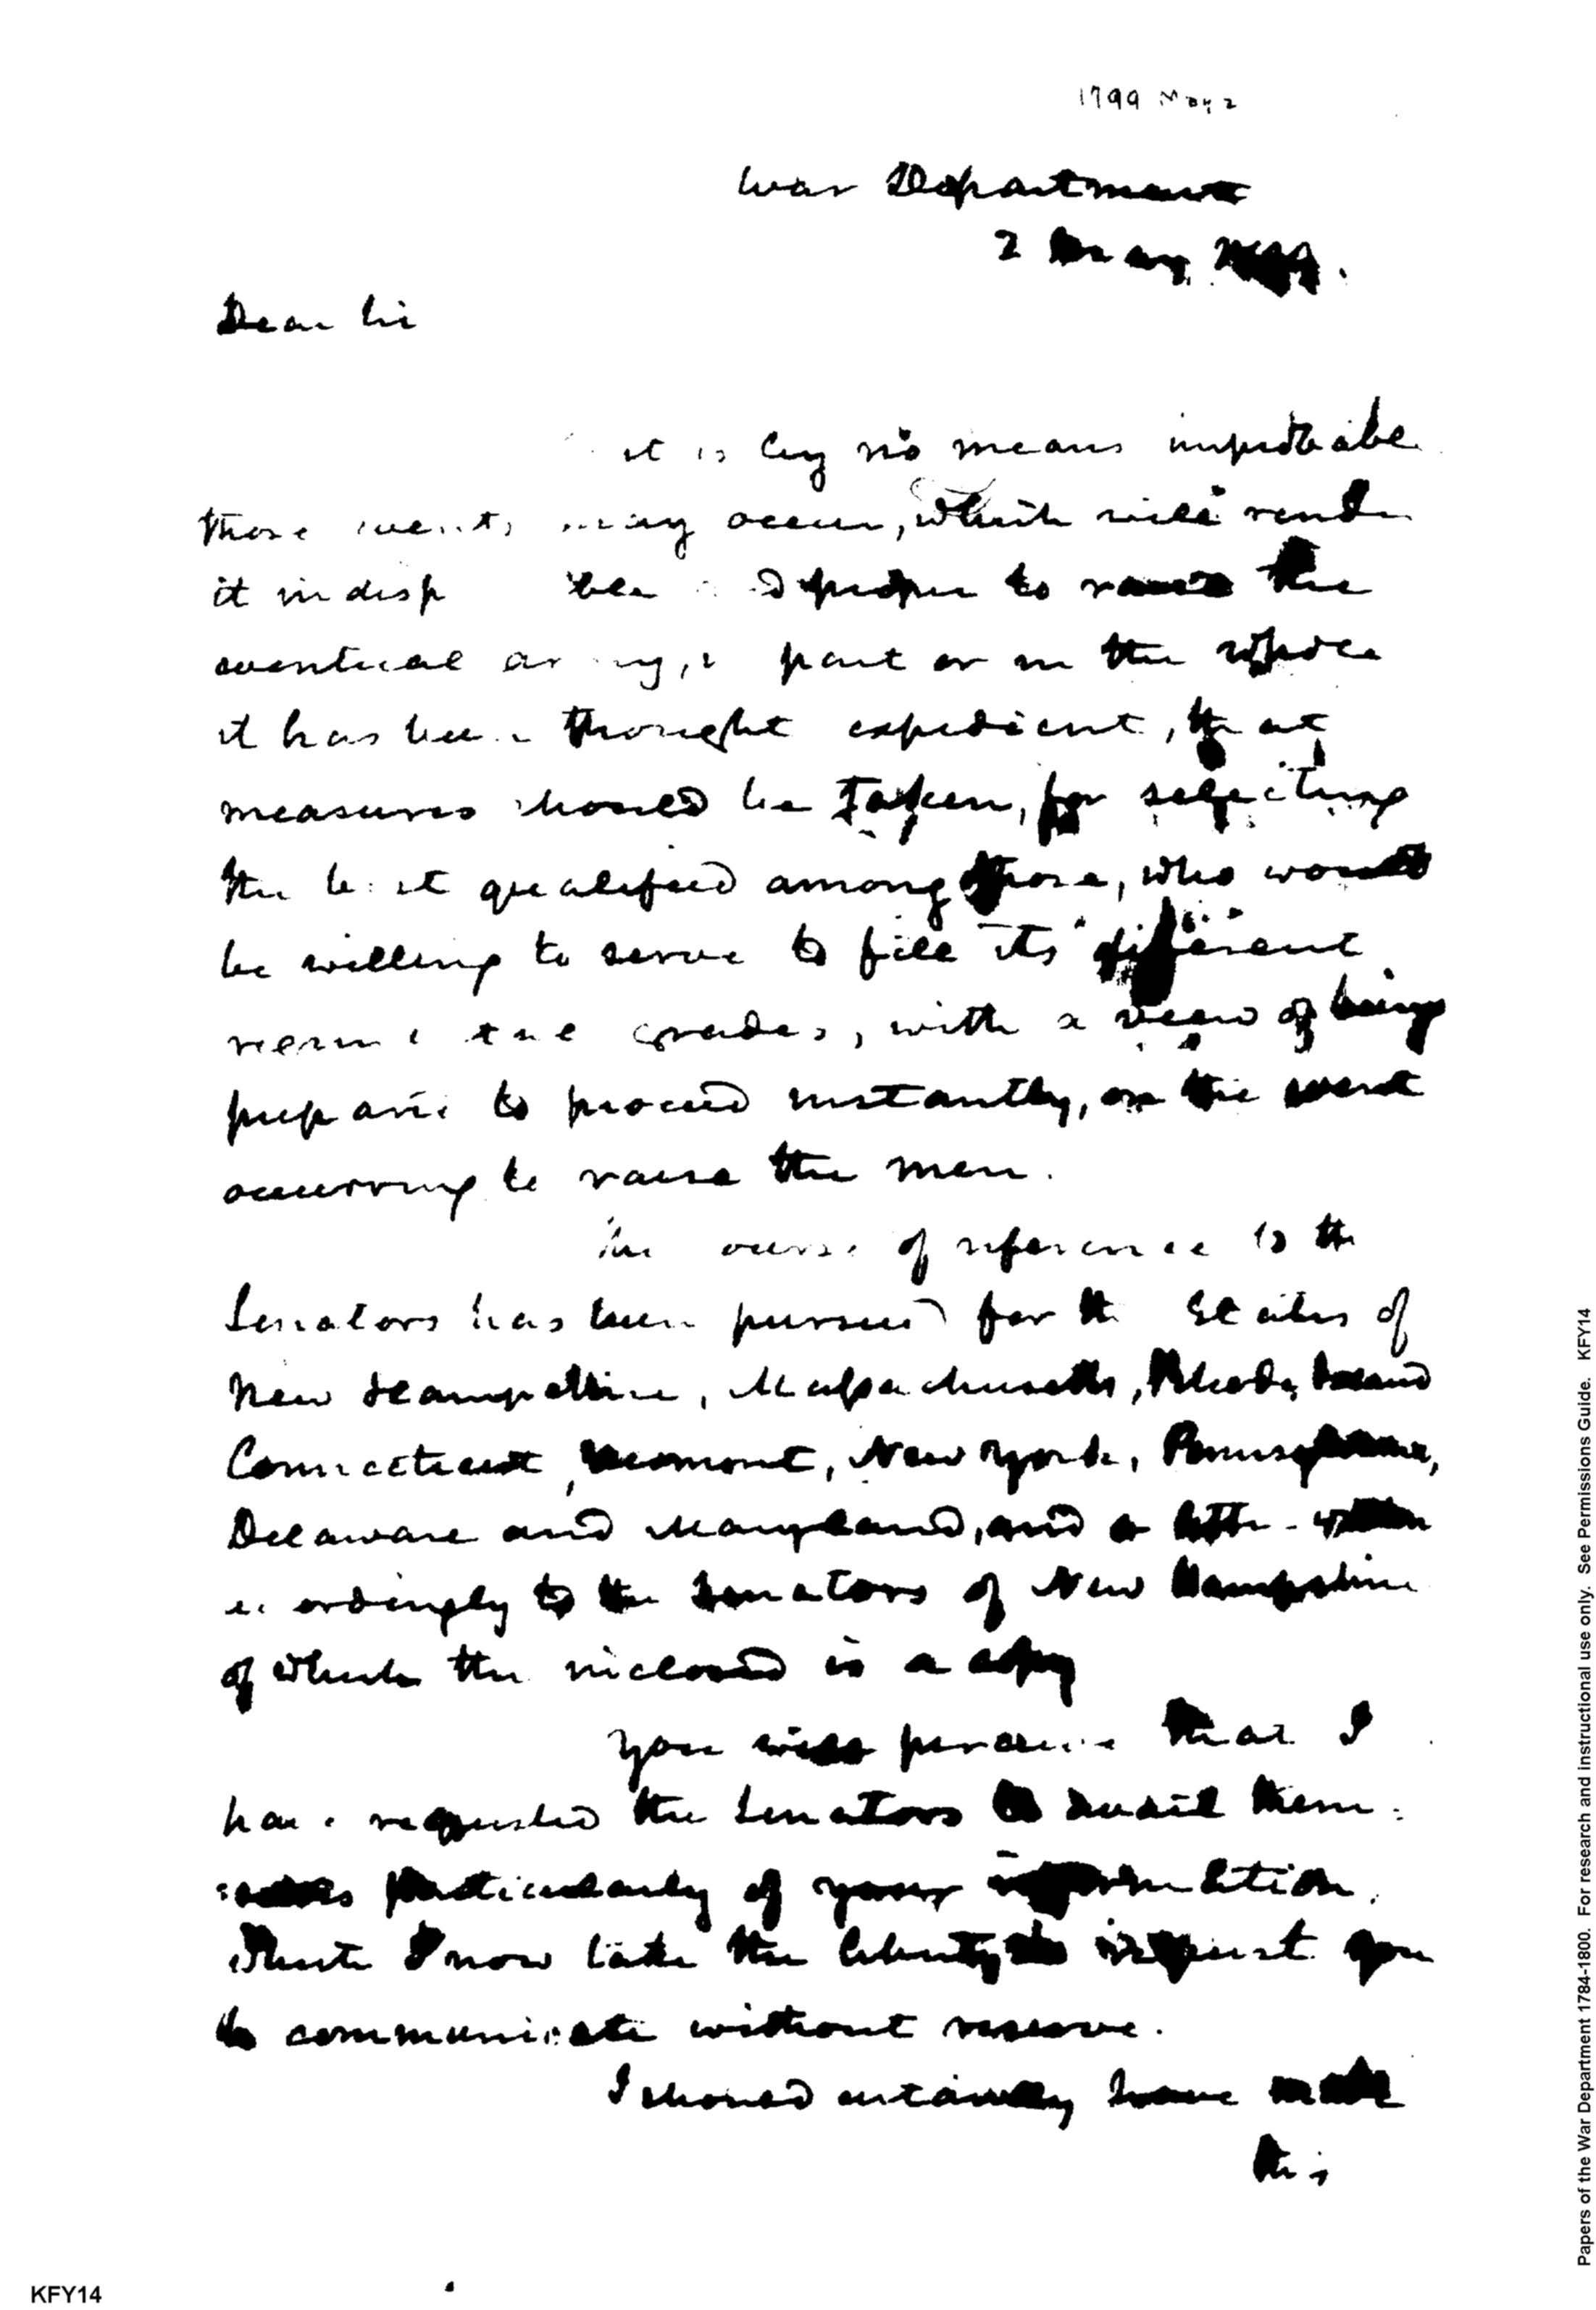 1799 May 2
War Department
2 May 1799.
Dear Sir
it is by no means improbable
those events may occur, which will render
it indisp ble proper to raise the
eventual army, part or in the whole
it has been thought expedient, that
measures should be taken, for selecting
the best qualified among those, who would
be willing to serve to fill its different
grades, with a view of being
prepared to proceed instantly, on the event
occurring to raise the men.
The course of reference to the
Senators has been pursued for the States of
New Hampshire, Massachusetts, Rhode Island
Connecticut, Vermont, New York, Pennsylvania,
Delaware and Maryland, and a letter written
accordingly to the Senators of New Hampshire
of which the inclosed is a copy
You will perceive that I
have requested the Senators to avail them=
selves particularly of your information,
which I now take the liberty to request you
to communicate without reserve.
I should certainly have made
this
KFY14
Papers of the War Department 1784-1800. For research and instructional use only. See Permissions Guide. KFY14